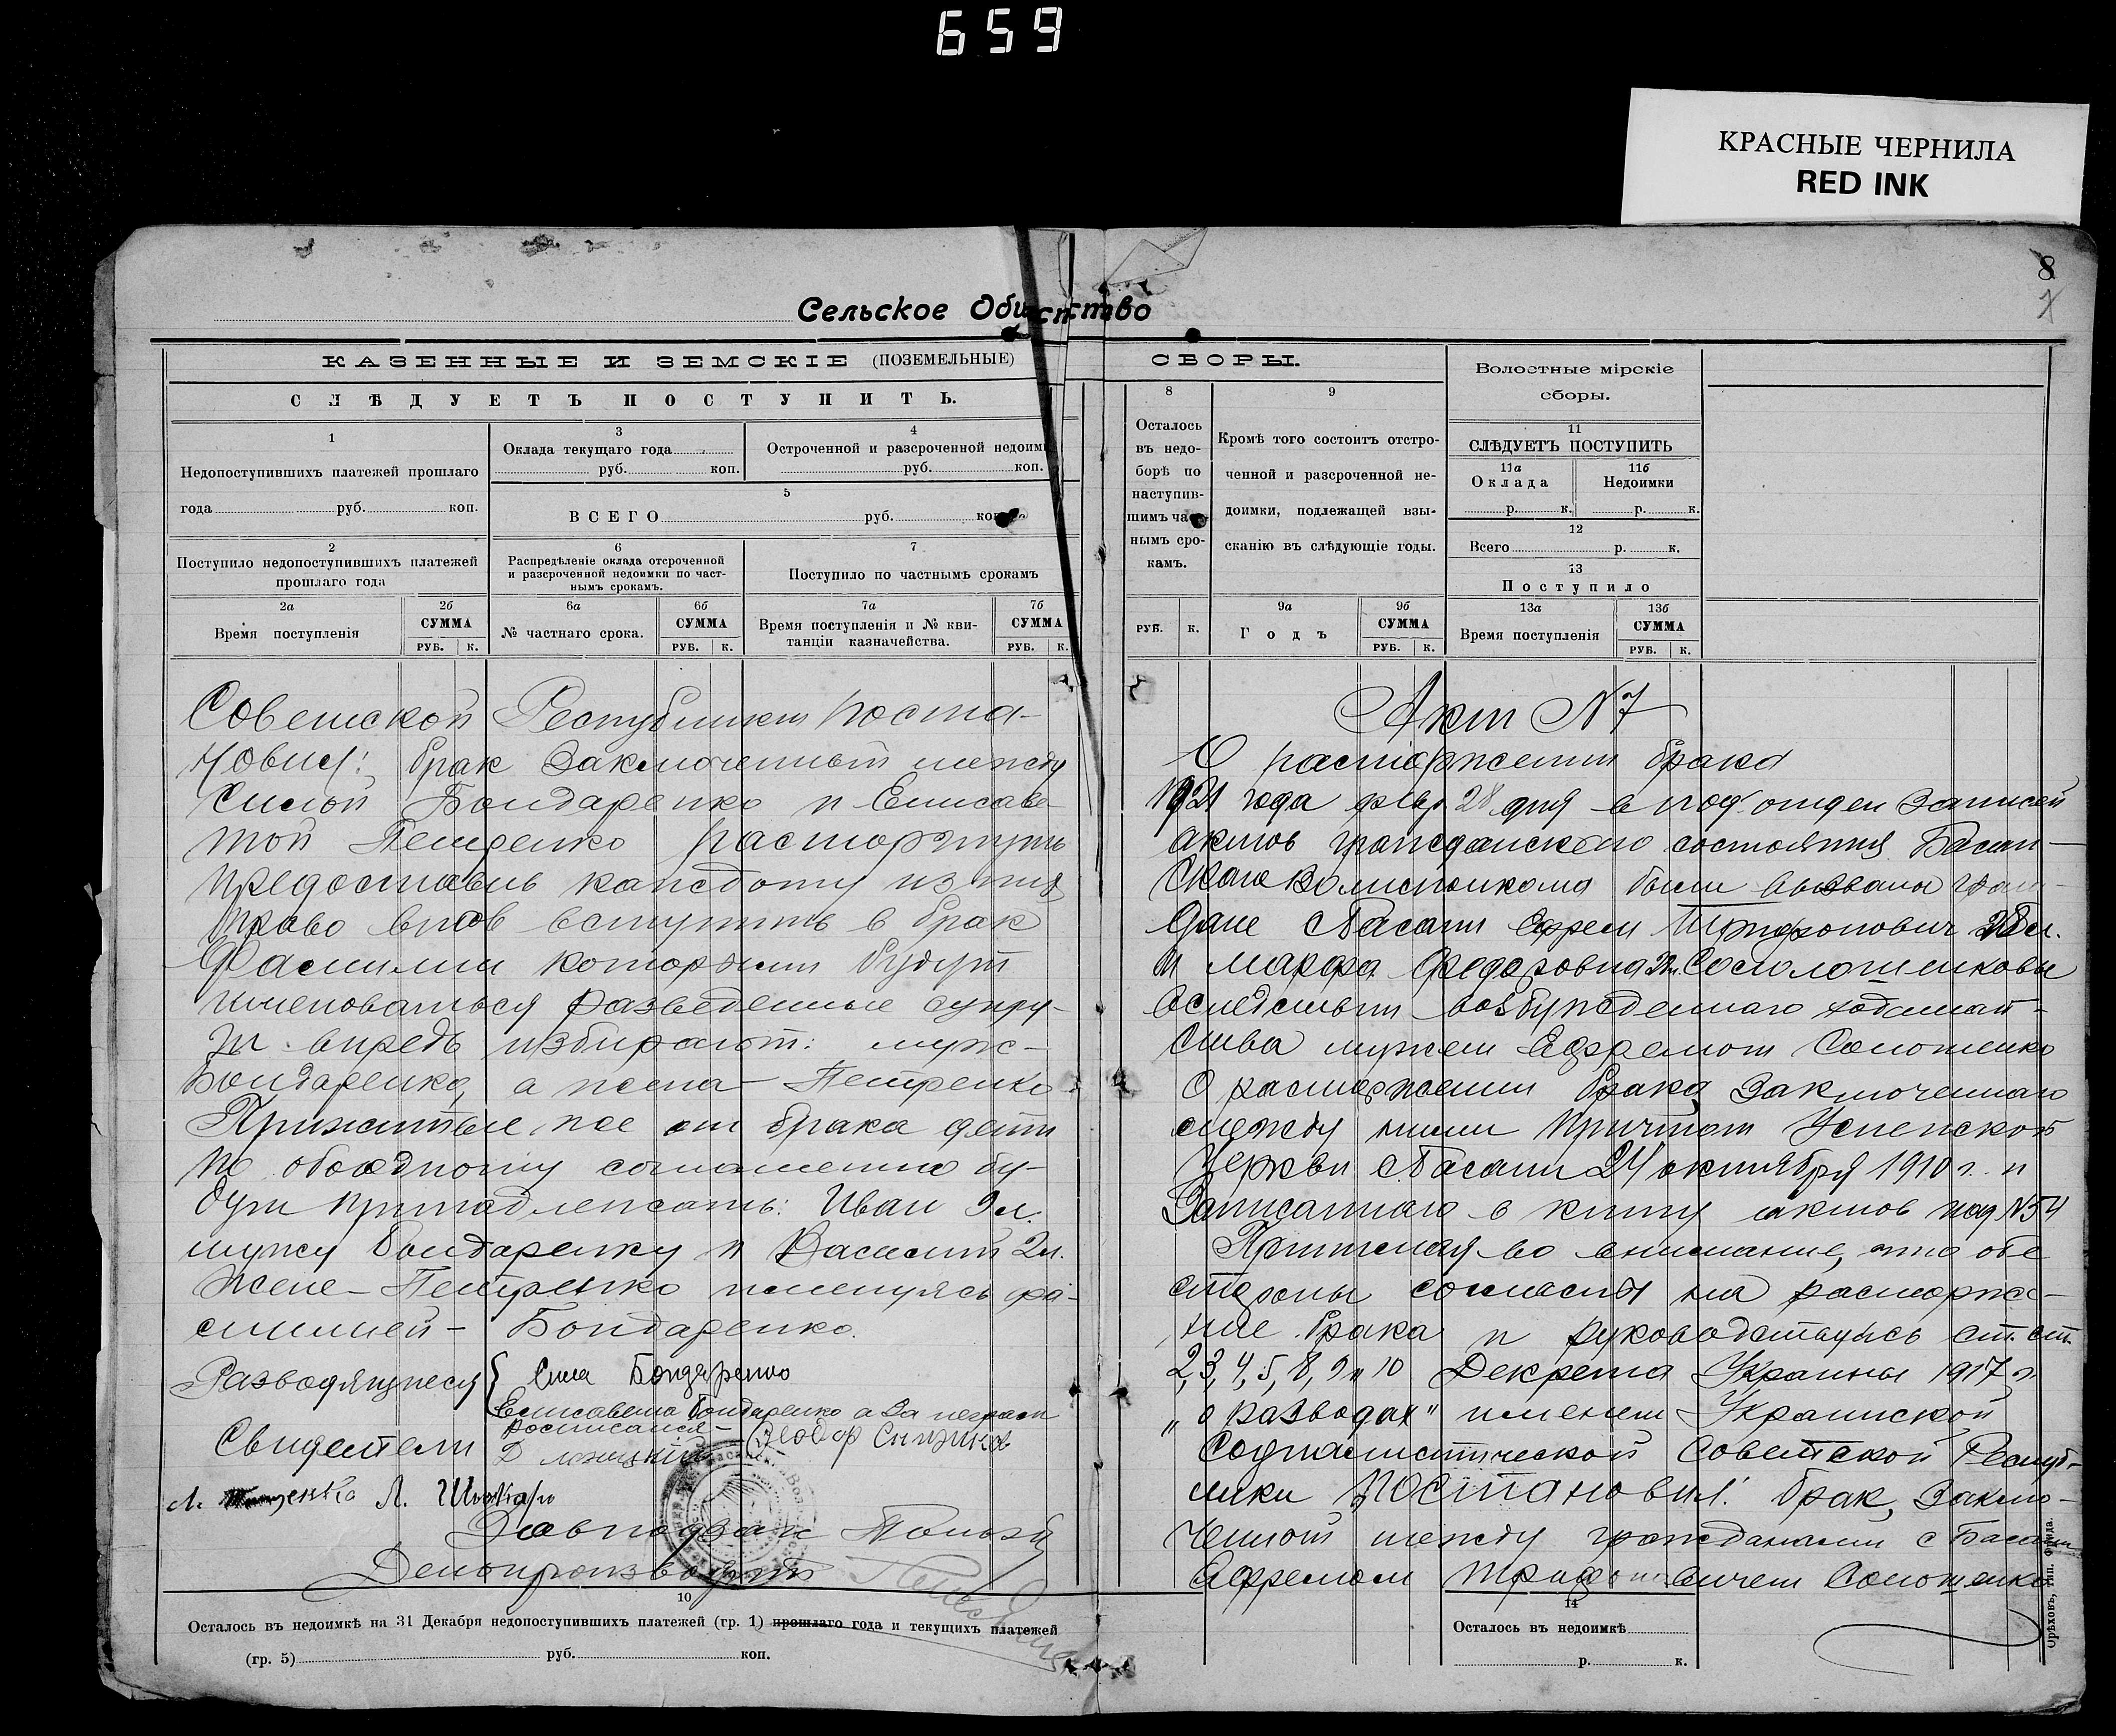 659
КРАСНЫЕ ЧЕРНИЛА
RED INK
8
Сельское Общество
КАЗЕННЫЕ И ЗЕМСКІЕ (ПОЗЕМЕЛЬНЫЕ) СБОРЫ.
СЛѢДУЕТЪ ПОСТУПИТЬ.
1
Недопоступившихъ платежей прошлаго
года руб. коп.
3
Оклада текущаго года
руб. коп.
4
Остроченной и разсроченной недоим
руб. коп.
5
ВСЕГО руб. коп.
2
Поступило недопоступившихъ платежей
прошлаго года
6
Распредѣленіе оклада отсроченной
и разсроченной недоимки по част-
нымъ срокамъ.
7
Поступило по частнымъ срокамъ
2а
Время поступленія
2б
СУММА
РУБ. К.
6а
№ частнаго срока.
6б
СУММА
РУБ. К.
7а
Время поступленія и № кви-
танціи казначейства.
7б
СУММА
РУБ. К.
Советской Республики поста-
новил: брак заключенный между
Силой Бондаренко и Елисаве-
той Петренко расторгнуть
предоставив каждому из них
право вновь вступить в брак
Фамилии которыми будут
именоваться разведенные супру-
ги впредь избирают: муж-
Бондаренко, а жена - Петренко
Прижитые же от брака дети
по обоюдному соглашению бу-
дут принадлежать: Иван 9 л.
мужу Бондаренку и Василий 2 л.
жене - Петренко именуясь фа-
милией - Бондаренко.
Разводящиеся { Сила Бондаренко
Елисавета Бондаренко а за неграм
росписался -
Свидетели
Л. Шкляр
Завподотдел
Делопроизводит
10
Осталось въ недоимкѣ на 31 Декабря недопоступившихъ платежей (гр. 1) прошлаго года и текущихъ платежей
(гр. 5) руб. коп.
8
Осталось
въ недо-
борѣ по
наступив-
шимъ част-
нымъ сро-
камъ.
РУБ. К.
9
Кромѣ того состоитъ отстро-
ченной и разсроченной не-
доимки, подлежащей взы-
сканію въ слѣдующіе годы.
9а
Годъ
9б
СУММА
РУБ. К.
Волостные мірскіе
сборы.
11
СЛѢДУЕТЪ ПОСТУПИТЬ
11а
Оклада
р. к.
11б
Недоимки
р. к.
12
Всего р. к.
13
Поступило
13а
Время поступленія
13б
СУММА
РУБ. К.
Акт N 7
О расторжении брака
1921 года февр 28 дня в под'отдел записей
актов гражданского состояния Басан-
ского Волисполкома были вызваны граж-
дане с Басани Ефрем 28 л.
и Марфа Федоровна Соломошенковы
вследствии возбужденнаго ходатай-
ства мужем Ефремом Соломошенко
о расторжении брака, заключеннаго
между ними причтом Успенской
церкви с. Басани 24 октября 1910 г. и
записаннаго в книгу актов под N 54
Принимая во внимание, что обе
стороны согласны на расторже-
ние брака и руководствуясь ст. ст.
2, 3, 4, 5, 8, 9 и 10 Декрета Украины 1917 г.
„о разводах" именем Украинской
Социалистической Советской Респуб-
лики постановил: брак, заклю-
ченный между гражданами с Басани
Ефремом
14
Осталось въ недоимкѣ
р. к.
Орѣховъ, тип. Фрида.